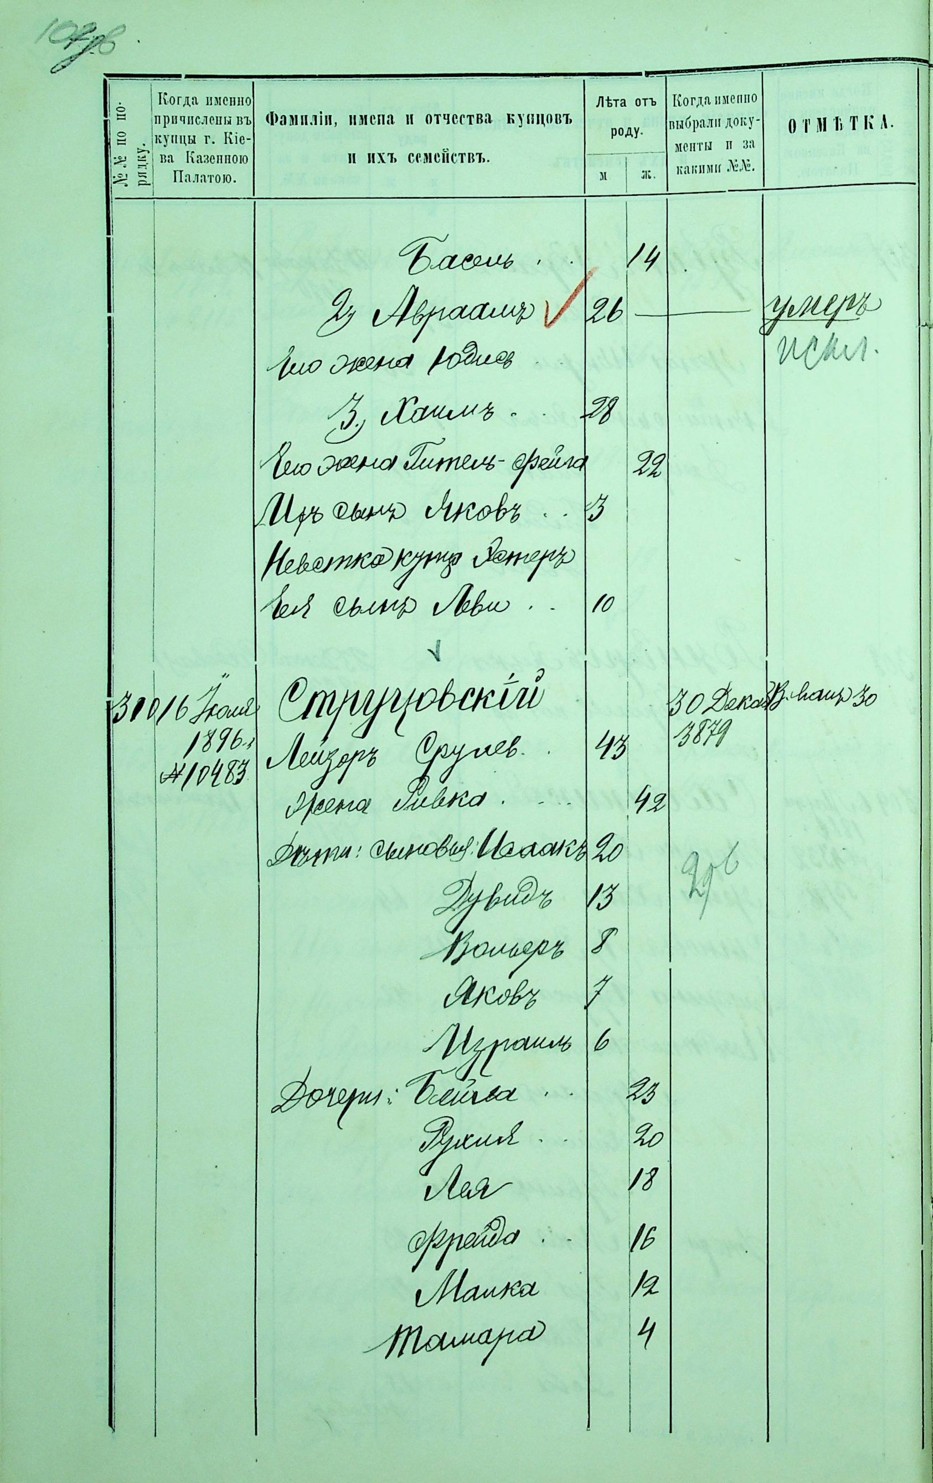 №№ по по-
рядку.
Когда именно
причислены въ
купцы г. Кіе-
ва Казенною
Палатою.
Фамиліи, имена и отчества купцовъ
и ихъ семействъ.
Лѣта отъ
роду.
м
ж.
Когда именно
выбрали доку-
менты и за
какими №№.
ОТМѢТКА.
Басель . . 14
2, Авраамъ 26 умеръ
Его жена Юдись искл.
3, Хаимъ . . 28
Его жена Гитель-Фейга 22
Ихъ сынъ Яковъ . . 3
Невѣстка купца Эстеръ
Ея сынъ Леви . . 10
310 16 Іюля Струцовскій 30 Дека
1896 г. Лейзоръ Срулев. . 43 3879
№ 10483
Жена Ривка . . . 42
Дѣти: сыновья: Исаакъ 20
Дувидъ 13
Вольфъ 8
Яковъ 7
Израиль 6
Дочери: Бейла . . 23
Рухля . . 20
Лея 18
Фрейда . . 16
Малка 12
Тамара 4